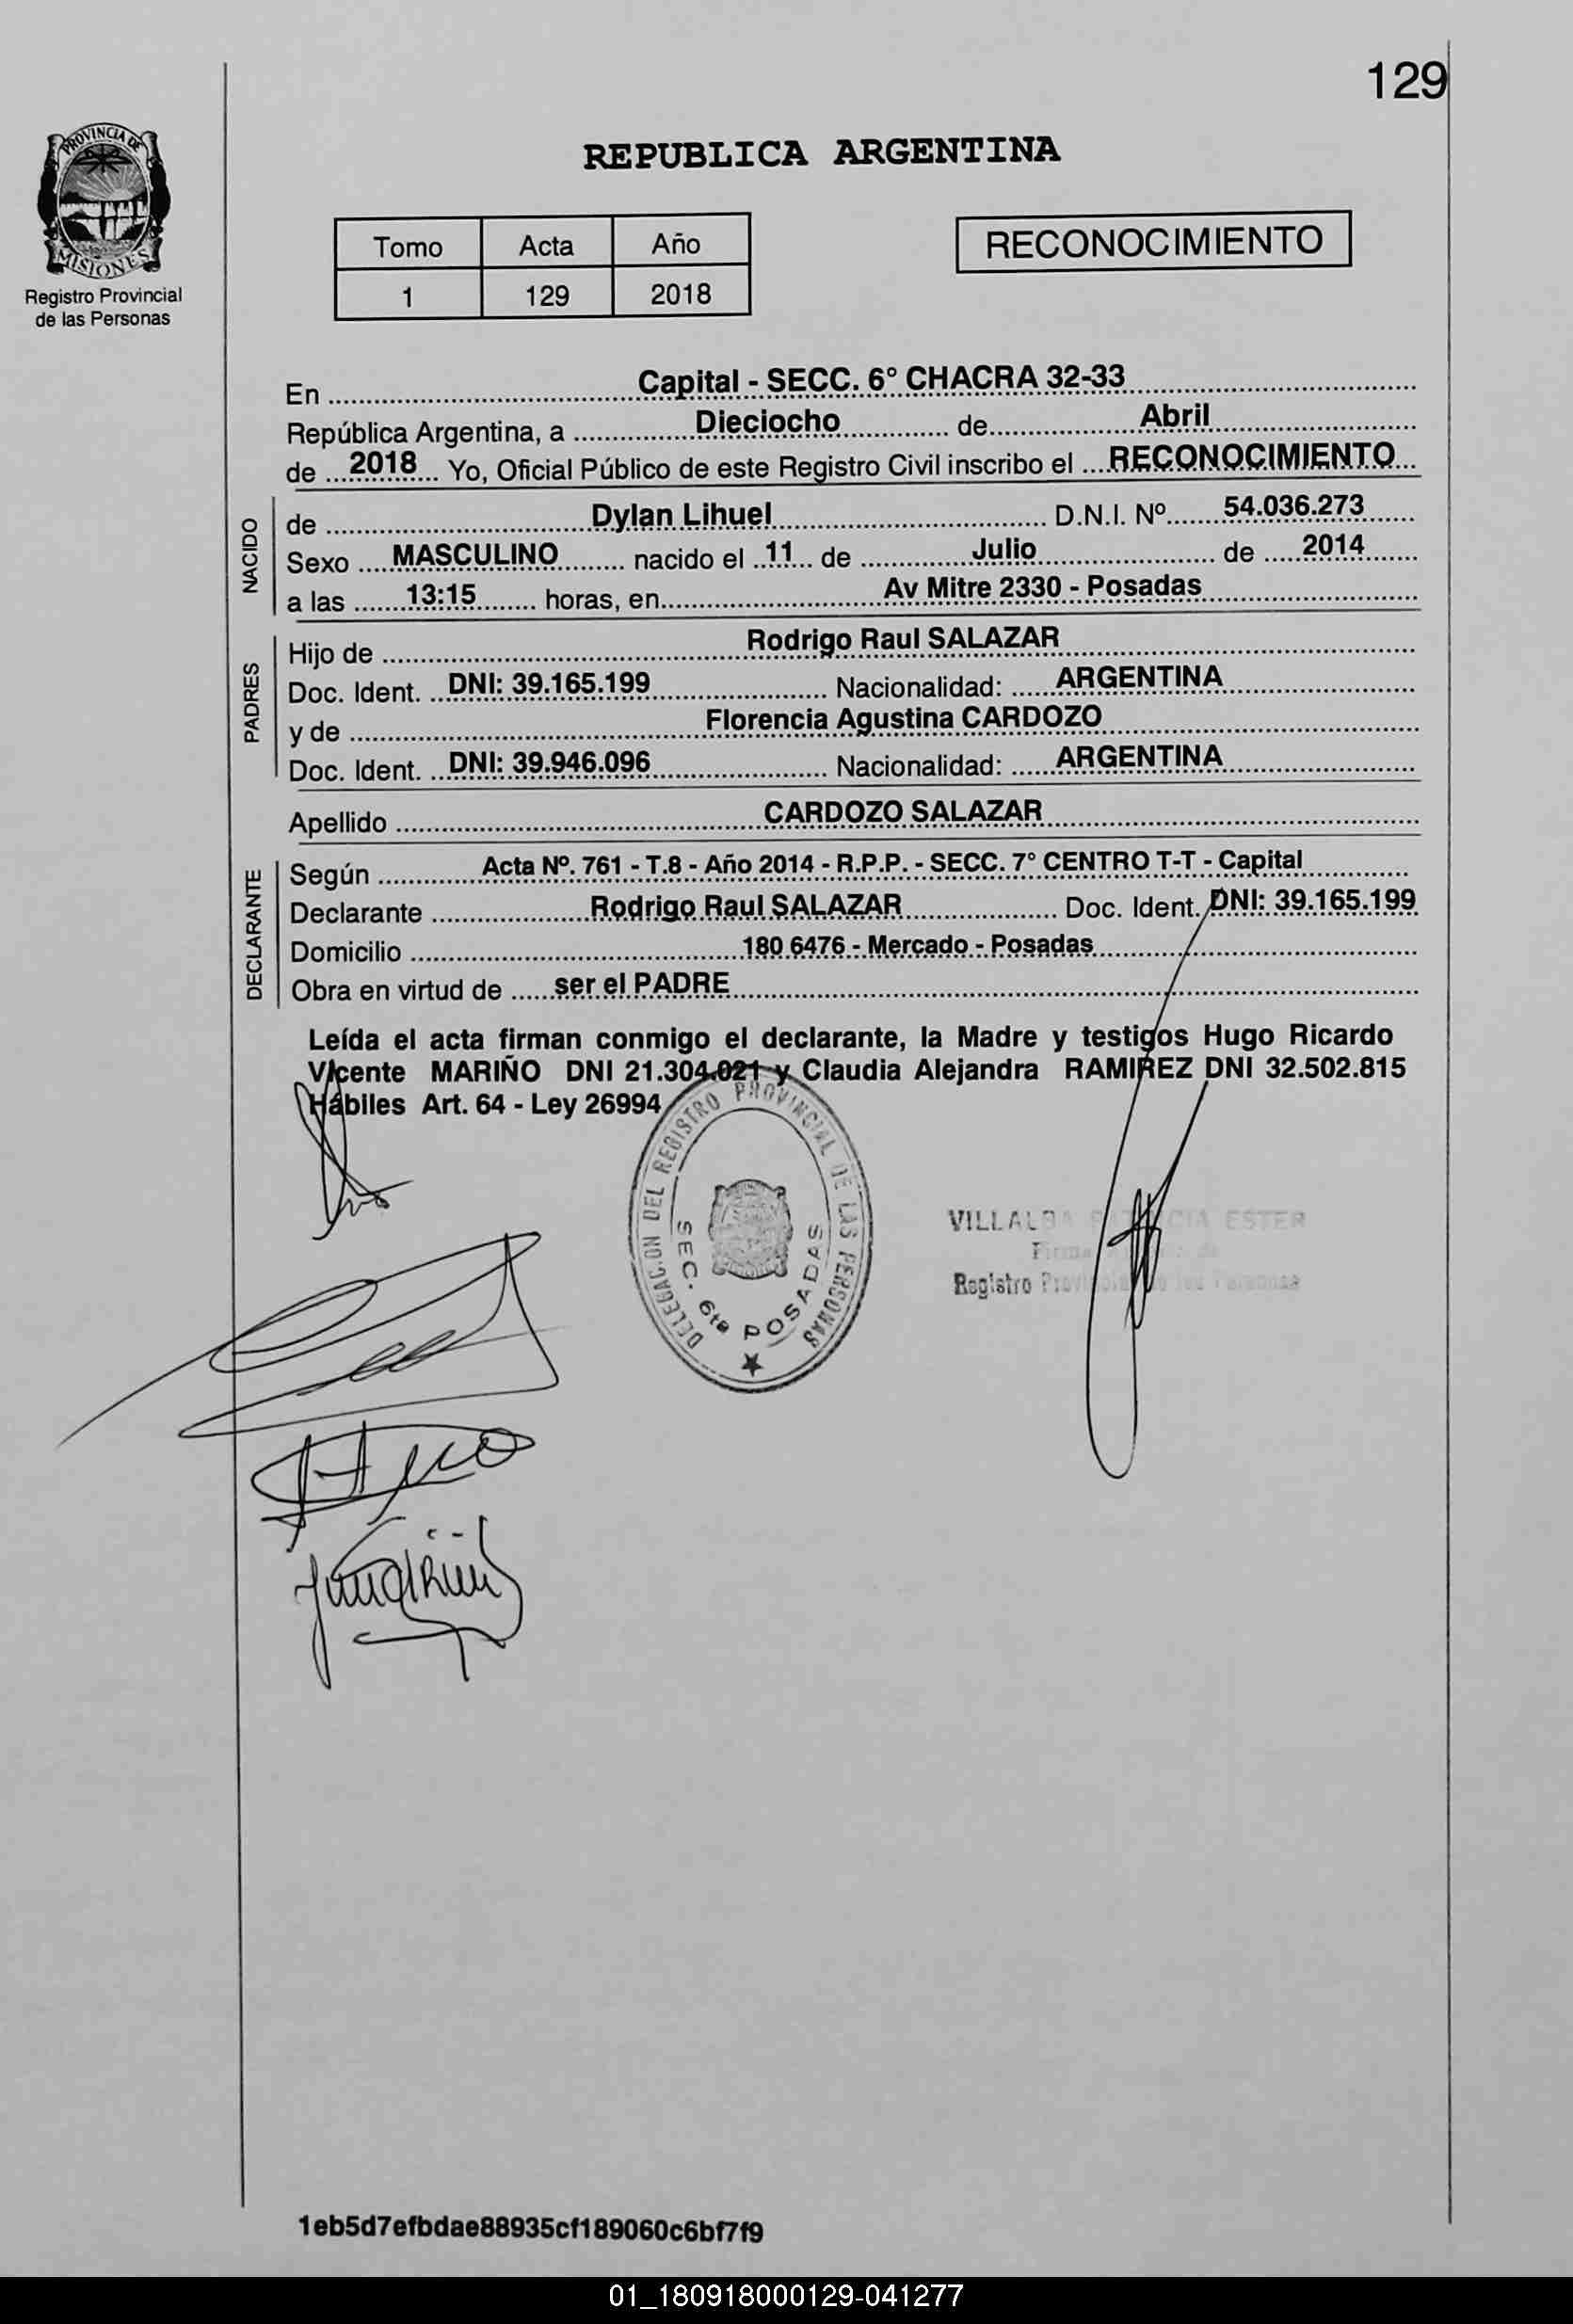 129
PROVINCIA DE
MISIONES
Registro Provincial
de las Personas
REPUBLICA ARGENTINA
Tomo Acta Año
1 129 2018
RECONOCIMIENTO
En Capital - SECC. 6° CHACRA 32-33
República Argentina, a Dieciocho de Abril
de 2018 Yo, Oficial Público de este Registro Civil inscribo el RECONOCIMIENTO
NACIDO
de Dylan Lihuel D.N.I. Nº 54.036.273
Sexo MASCULINO nacido el 11 de Julio de 2014
a las 13:15 horas, en Av Mitre 2330 - Posadas
PADRES
Hijo de Rodrigo Raul SALAZAR
Doc. Ident. DNI: 39.165.199 Nacionalidad: ARGENTINA
y de Florencia Agustina CARDOZO
Doc. Ident. DNI: 39.946.096 Nacionalidad: ARGENTINA
Apellido CARDOZO SALAZAR
DECLARANTE
Según Acta Nº. 761 - T.8 - Año 2014 - R.P.P. - SECC. 7° CENTRO T-T - Capital
Declarante Rodrigo Raul SALAZAR Doc. Ident. DNI: 39.165.199
Domicilio 180 6476 - Mercado - Posadas
Obra en virtud de ser el PADRE
Leída el acta firman conmigo el declarante, la Madre y testigos Hugo Ricardo
Vicente MARIÑO DNI 21.304.021 y Claudia Alejandra RAMIREZ DNI 32.502.815
Hábiles Art. 64 - Ley 26994
DELEGACION DEL REGISTRO PROVINCIAL DE LAS PERSONAS
SEC. 6ta POSADAS
VILLALBA ESTER
Registro Provincial de las Personas
1eb5d7efbdae88935cf189060c6bf7f9
01_180918000129-041277